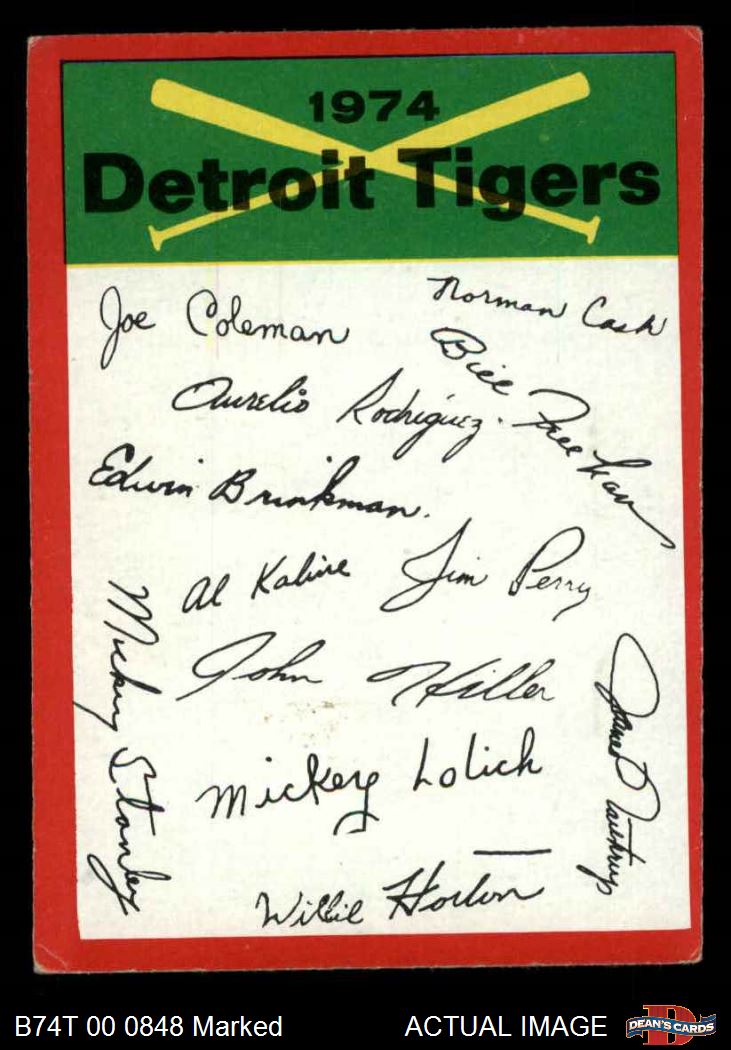 1974
Detroit Tigers
Norman Cash
Joe Coleman
Bill Freehan
Aurelio Rodriguez.
Edwin Brinkman.
Al Kaline
Jim Perry
John Hiller
Mickey Stanley
James Northrup
Mickey Lolich
Willie Horton
B74T 00 0848 Marked
ACTUAL IMAGE
D
DEAN'S CARDS